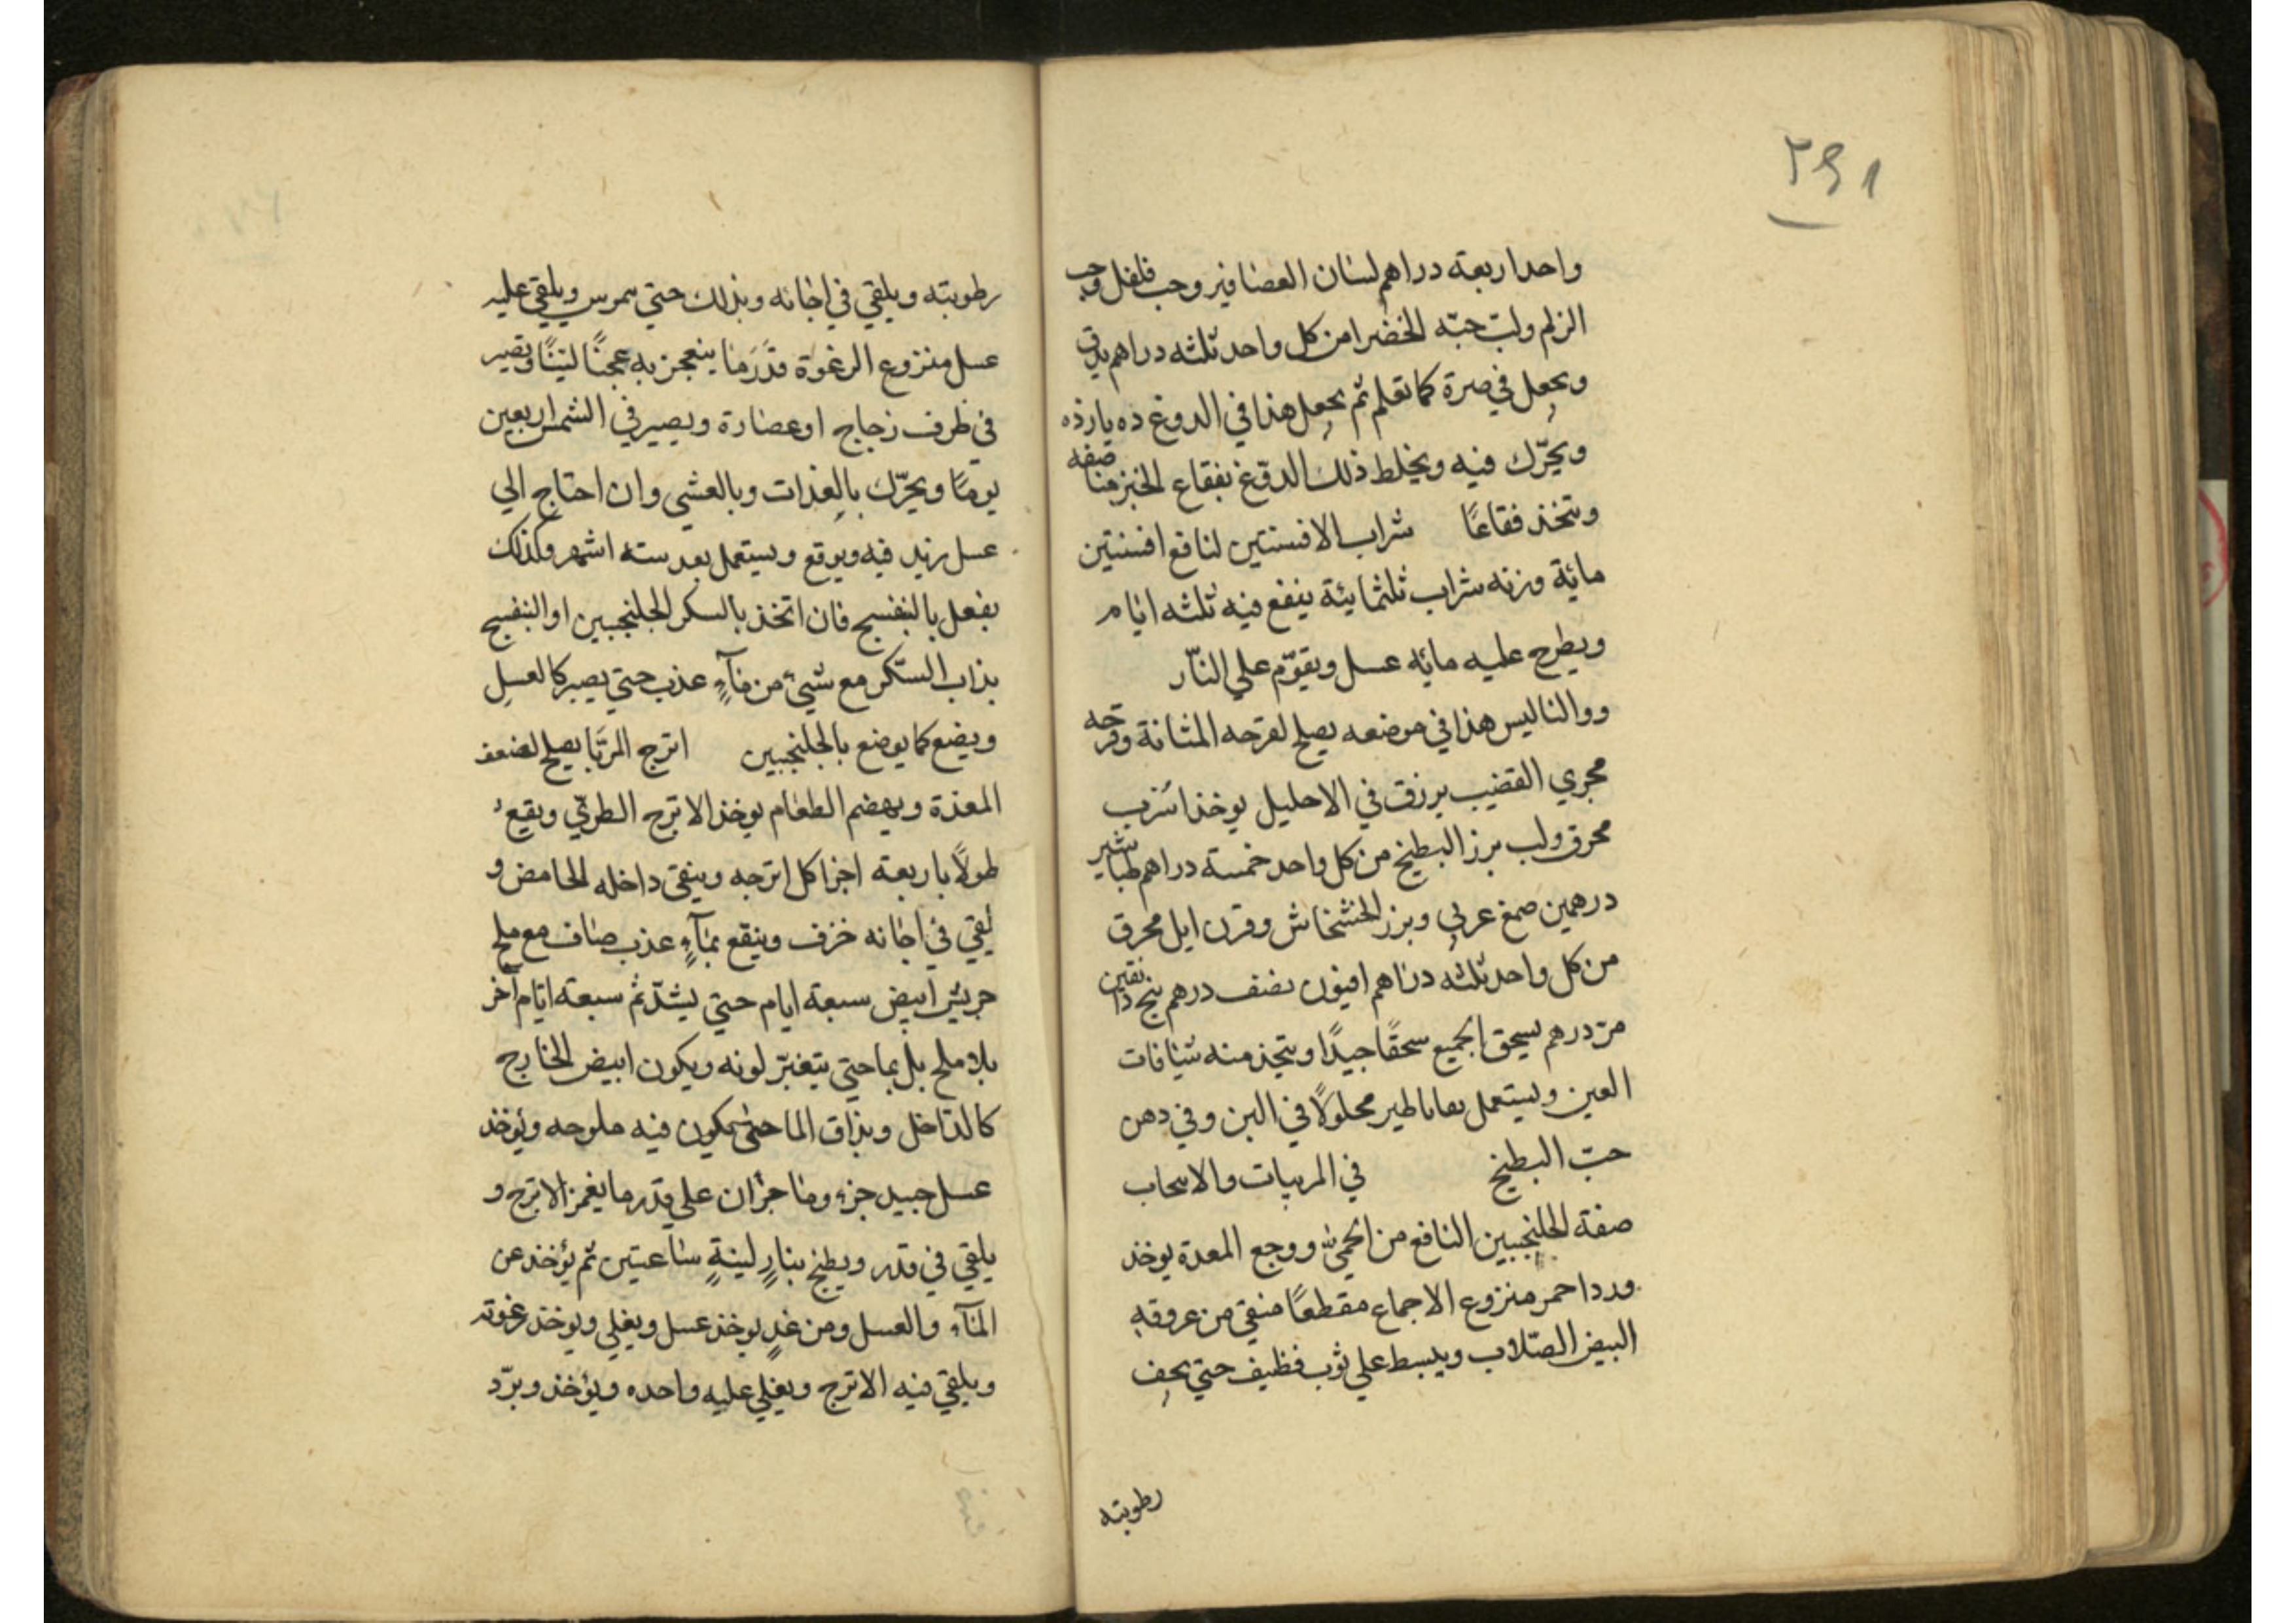 ٢٩١
واحد اربعة دراهم لسان العصافير وحب فلفل وحب
الزلم ولب حبّه الخضرا من كل واحد ثلثه دراهم يدق
ويجعل في صرة كما تعلم ثم يجعل هذا في الدوغ ده يازده
ويحرّك فيه ويخلط ذلك الدوغ بفقاع الخبز منا صفه
ويتخذ فقاعًا شراب الافسنتين لنا فع افسنتين
مائة وزنه شراب ثلثمايئة ينقع فيه ثلثه ايام
ويطرح عليه مائه عسل ويقوّم علي النّار
ووالناليس هذا في موضعه يصلح لقرحه المثانة وقرحه
مجري القضيب يرزق في الاحليل يوخذ اسّرب
محرق ولب بزر البطيخ من كل واحد خمسة دراهم طباشير
درهمين صمغ عربي وبزر الخشخاش وقرن ايل محرق
من كل واحد ثلثه دراهم افيون نصف درهم بنج دانقين
مرّ درهم يسحق الجميع سحقًا جيدًا ويتخذ منه شيافات
العين ويستعمل محلولًا في البن وفي دهن
حبّ البطيخ في المربيات والا
صفة الجلنجبين النافع من الحمي ووجع المعدة يوخذ
ورد احمر منزوع الاجماع مقطعًا منقي من عروقه
البيض الصّلاب ويبسط علي ثوب فظيف حتي يجف
رطوبته
رطوبته ويلقي في اجانه وبذلك حتي يمرس ويلقي عليه
عسل منزوع الرغوة قدَرَ ما ينعجن به عجنًا لينًا وتصير
في ظرف زجاج او عضارة ويصير في الشمس اربعين
يومًا ويحرّك بالغدات وبالعشي وان احتاج الي
عسل زيد فيه ويوقع ويستعمل بعد سته اشهر وكذلك
يفعل بالبنفسج فان اتخذ بالسكر الجلنجبين او البنفسج
يذاب السّكر مع شيئ من مآءٍ عذب حتي يصير كالعسل
ويضع كما يوضع بالجلنجبين اترج المربّا يصلح لضعف
المعدة ويهضم الطعام يوخذ الاترج الطريّ ويقيع
طولًا باربعة اجزا كل اترجه وينقي داخله الحامض و
لقي في اجانه خزف وينقع بمآءٍ عذب صاف مع ملح
جريش ابيض سبعة ايام حتي يشدّ ثم سبعة ايام آخر
بلا ملح بل بما حتي يتغيّر لونه ويكون ابيض الخارج
كالداخل ويذاق الما حتي يكون فيه ملوحه ويؤخذ
عسل جيد جزء وما جزان علي قدر ما يغمز الاترج و
يلقي في قدر ويطبخ بنارٍ لينةٍ ساعتين ثم يؤخذ عن
المآء والعسل ومن غدٍ يوخذ عسل ويغلي ويوخذ رغوته
ويلقي فيه الاترج ويغلي عليه واحده ويؤخذ وبرّد